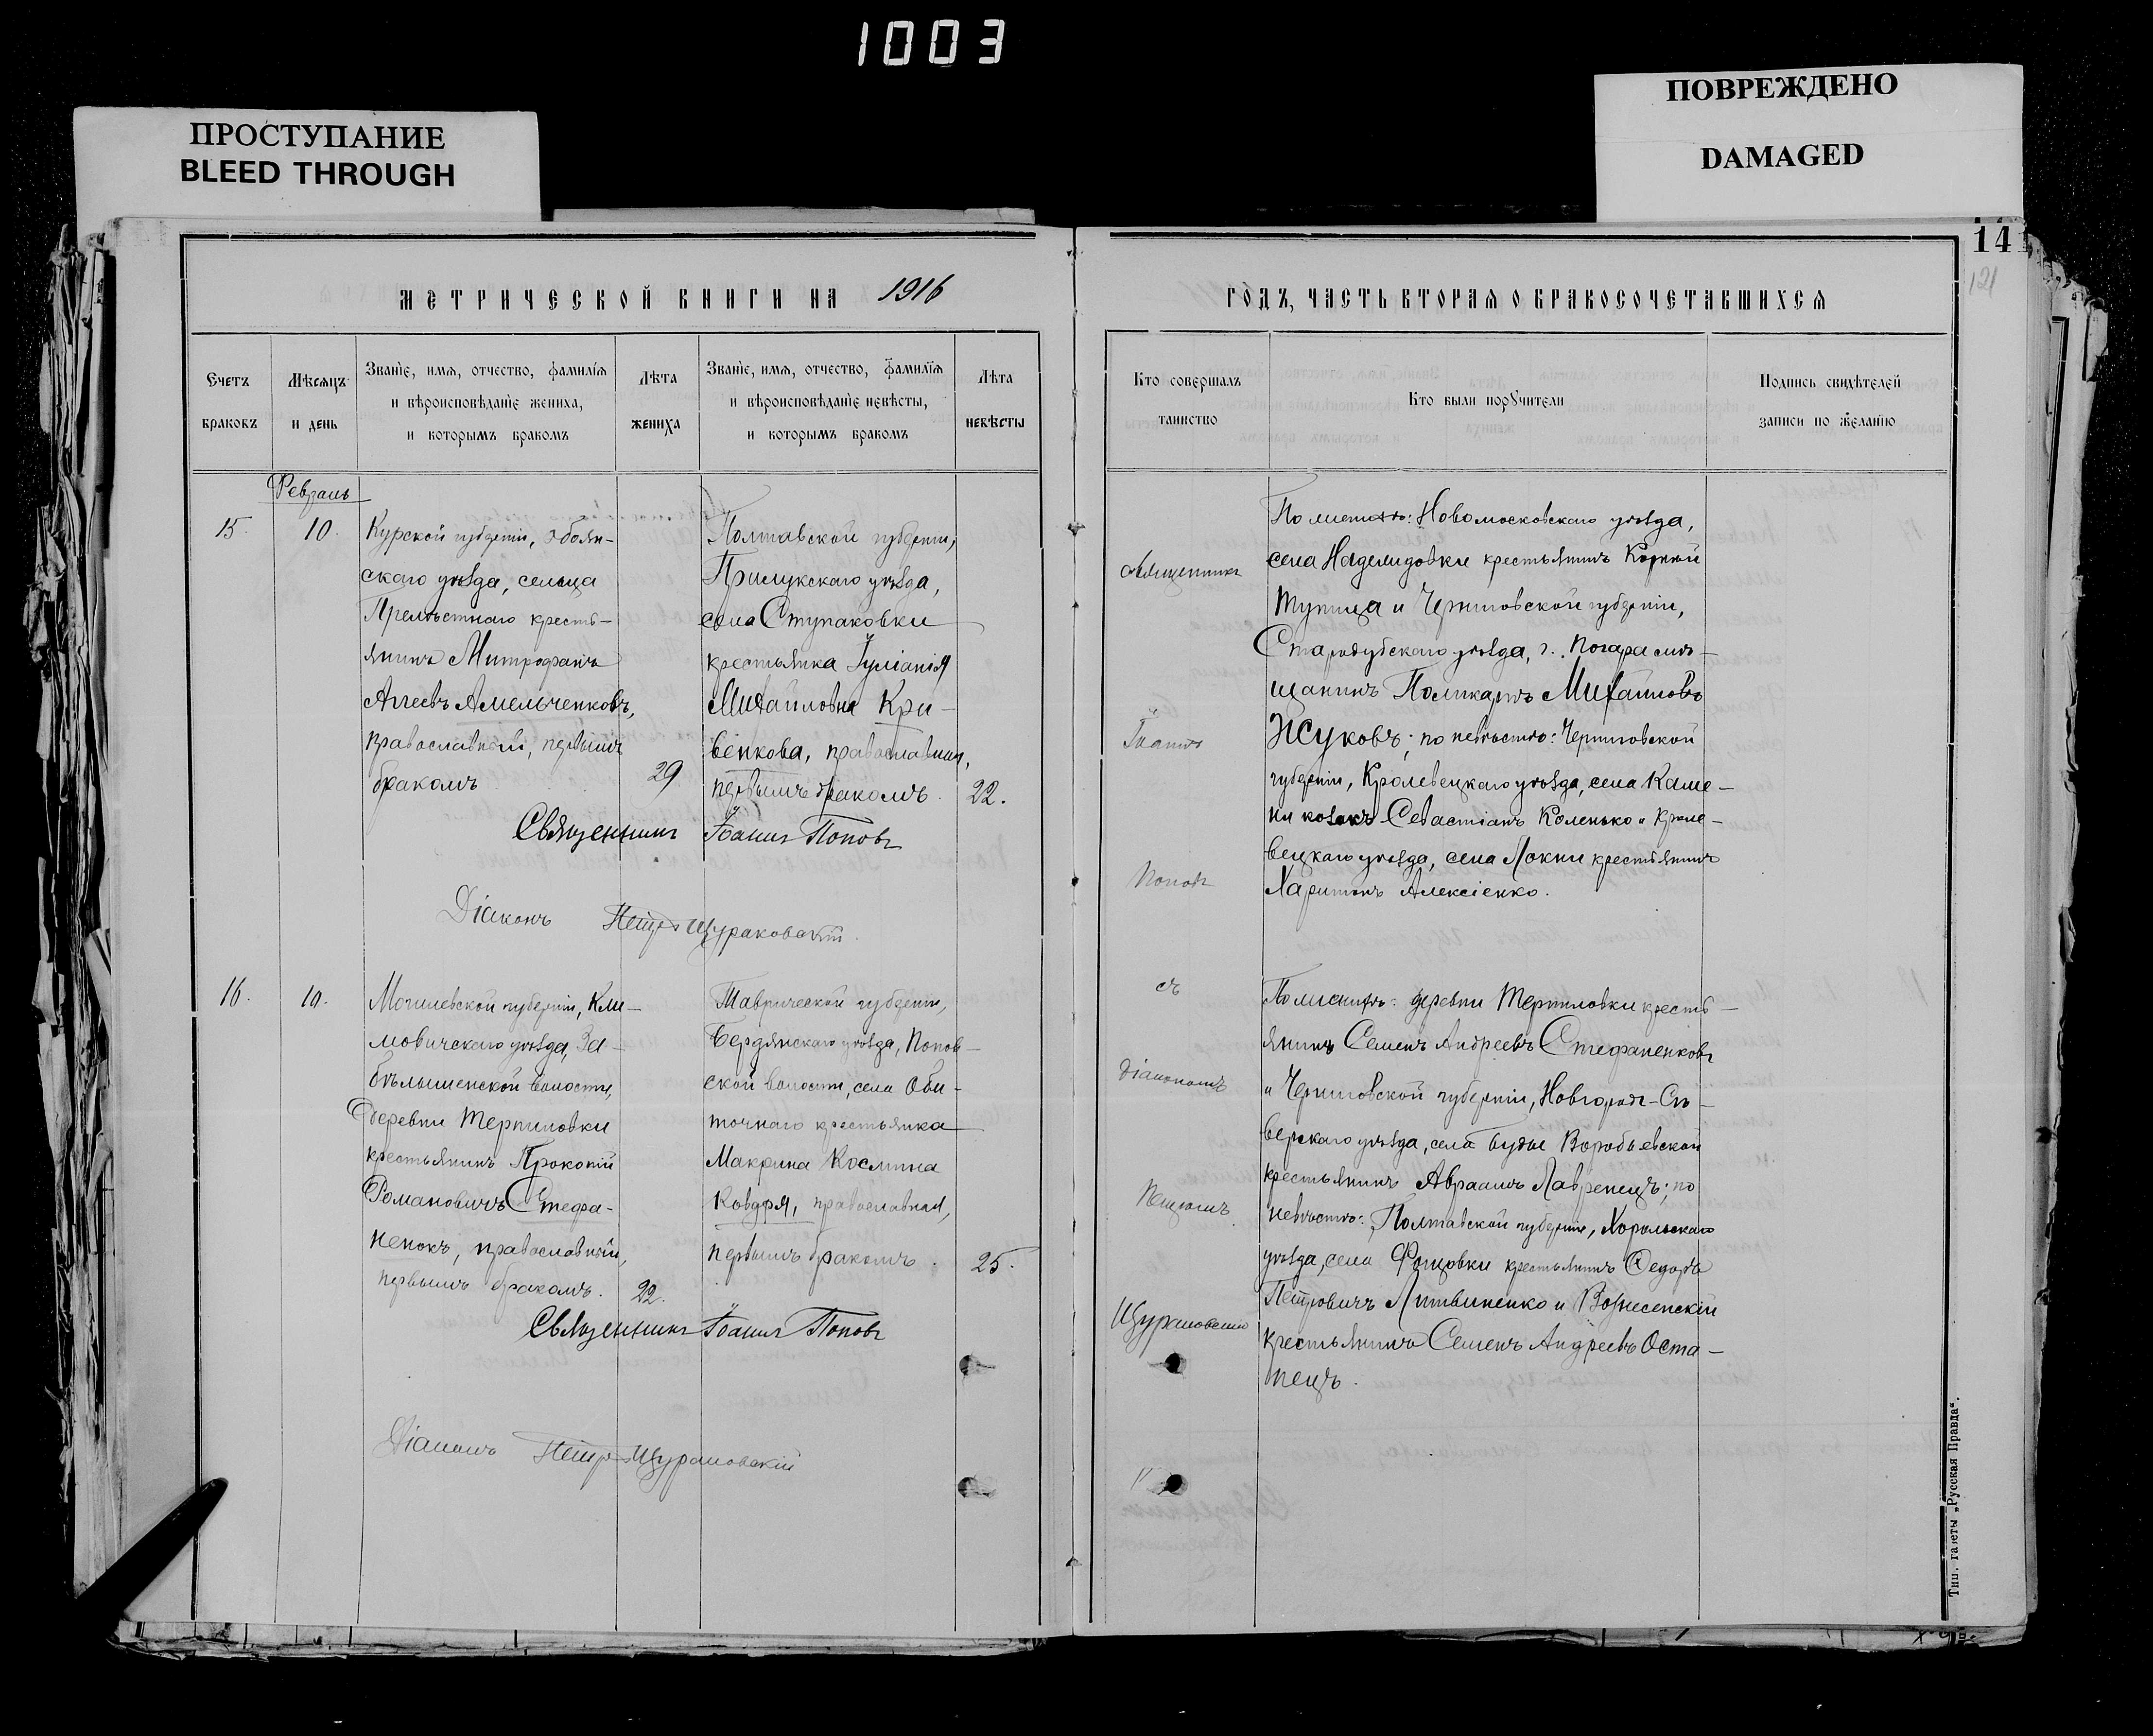 1003
ПРОСТУПАНИЕ
BLEED THROUGH
ПОВРЕЖДЕНО
DAMAGED
14
121
МЕТРИЧЕСКОЙ КНИГИ НА 1916
Счетъ
браковъ
Мѣсяцъ
и день
Званіе, имя, отчество, фамилія
и вѣроисповѣданіе жениха,
и которымъ бракомъ
Лѣта
жениха
Званіе, имя, отчество, фамилія
и вѣроисповѣданіе невѣсты,
и которымъ бракомъ
Лѣта
невѣсты
Февраль
15.
10.
Курской губерніи, Обоян-
скаго уѣзда, сельца
Прелѣстнаго кресть-
янинъ Митрофанъ
Аггеевъ Амельченковъ,
православный, первымъ
бракомъ
29
Полтавской губерніи,
Прилукскаго уѣзда,
села Ступаковки
крестьянка Іуліанія
Михайловна Кри-
венкова, православная,
первымъ бракомъ.
22.
Священникъ Іоаннъ Поповъ
Діаконъ Петръ Щураковскій.
16.
10.
Могилевской губерніи, Кли-
мовичскаго уѣзда, За-
бѣлышенской волости,
деревни Терпиловки
крестьянинъ Прокопій
Романовичъ Стефа-
ненокъ, православный,
первымъ бракомъ.
22.
Таврической губерніи,
Бердянскаго уѣзда, Попов-
ской волости, села Оби-
точнаго крестьянка
Макрина Космина
Ковдря, православная,
первымъ бракомъ.
25.
Священникъ Іоаннъ Поповъ
Діаконъ Петръ Щураковскій
ГОДЪ, ЧАСТЬ ВТОРАЯ О БРАКОСОЧЕТАВШИХСЯ
Кто совершалъ
таинство
Кто были поручители
Подпись свидѣтелей
записи по желанію
Священникъ
Іоаннъ
Поповъ
съ
діакономъ
Петромъ
Щураковскимъ
По женихѣ: Новомосковскаго уѣзда,
села крестьянинъ Корній
Тупица и Черниговской губерніи,
Стародубскаго уѣзда, г. Погара мѣ-
щанинъ Поликарпъ Михайловъ
Жуковъ; по невѣстѣ: Черниговской
губерніи, Кролевецкаго уѣзда, села Каме-
ни козакъ Севастіанъ Коленько и Кроле-
вецкаго уѣзда, села Локни крестьянинъ
Харитонъ Алексіенко.
По женихѣ: деревни Терпиловки кресть-
янинъ Семенъ Андреевъ Стефаненковъ
и Черниговской губерніи, Новгородъ-Сѣ-
верскаго уѣзда, села Будые Воробьевской
крестьянинъ Авраамъ Лавренецъ; по
невѣстѣ: Полтавской губерніи, Хорольскаго
уѣзда, села крестьянинъ Ѳедоръ
Петровичъ Литвиненко и Вознесенскій
крестьянинъ Семенъ Андреевъ Оста-
пецъ.
Тип. газеты „Русская Правда“.